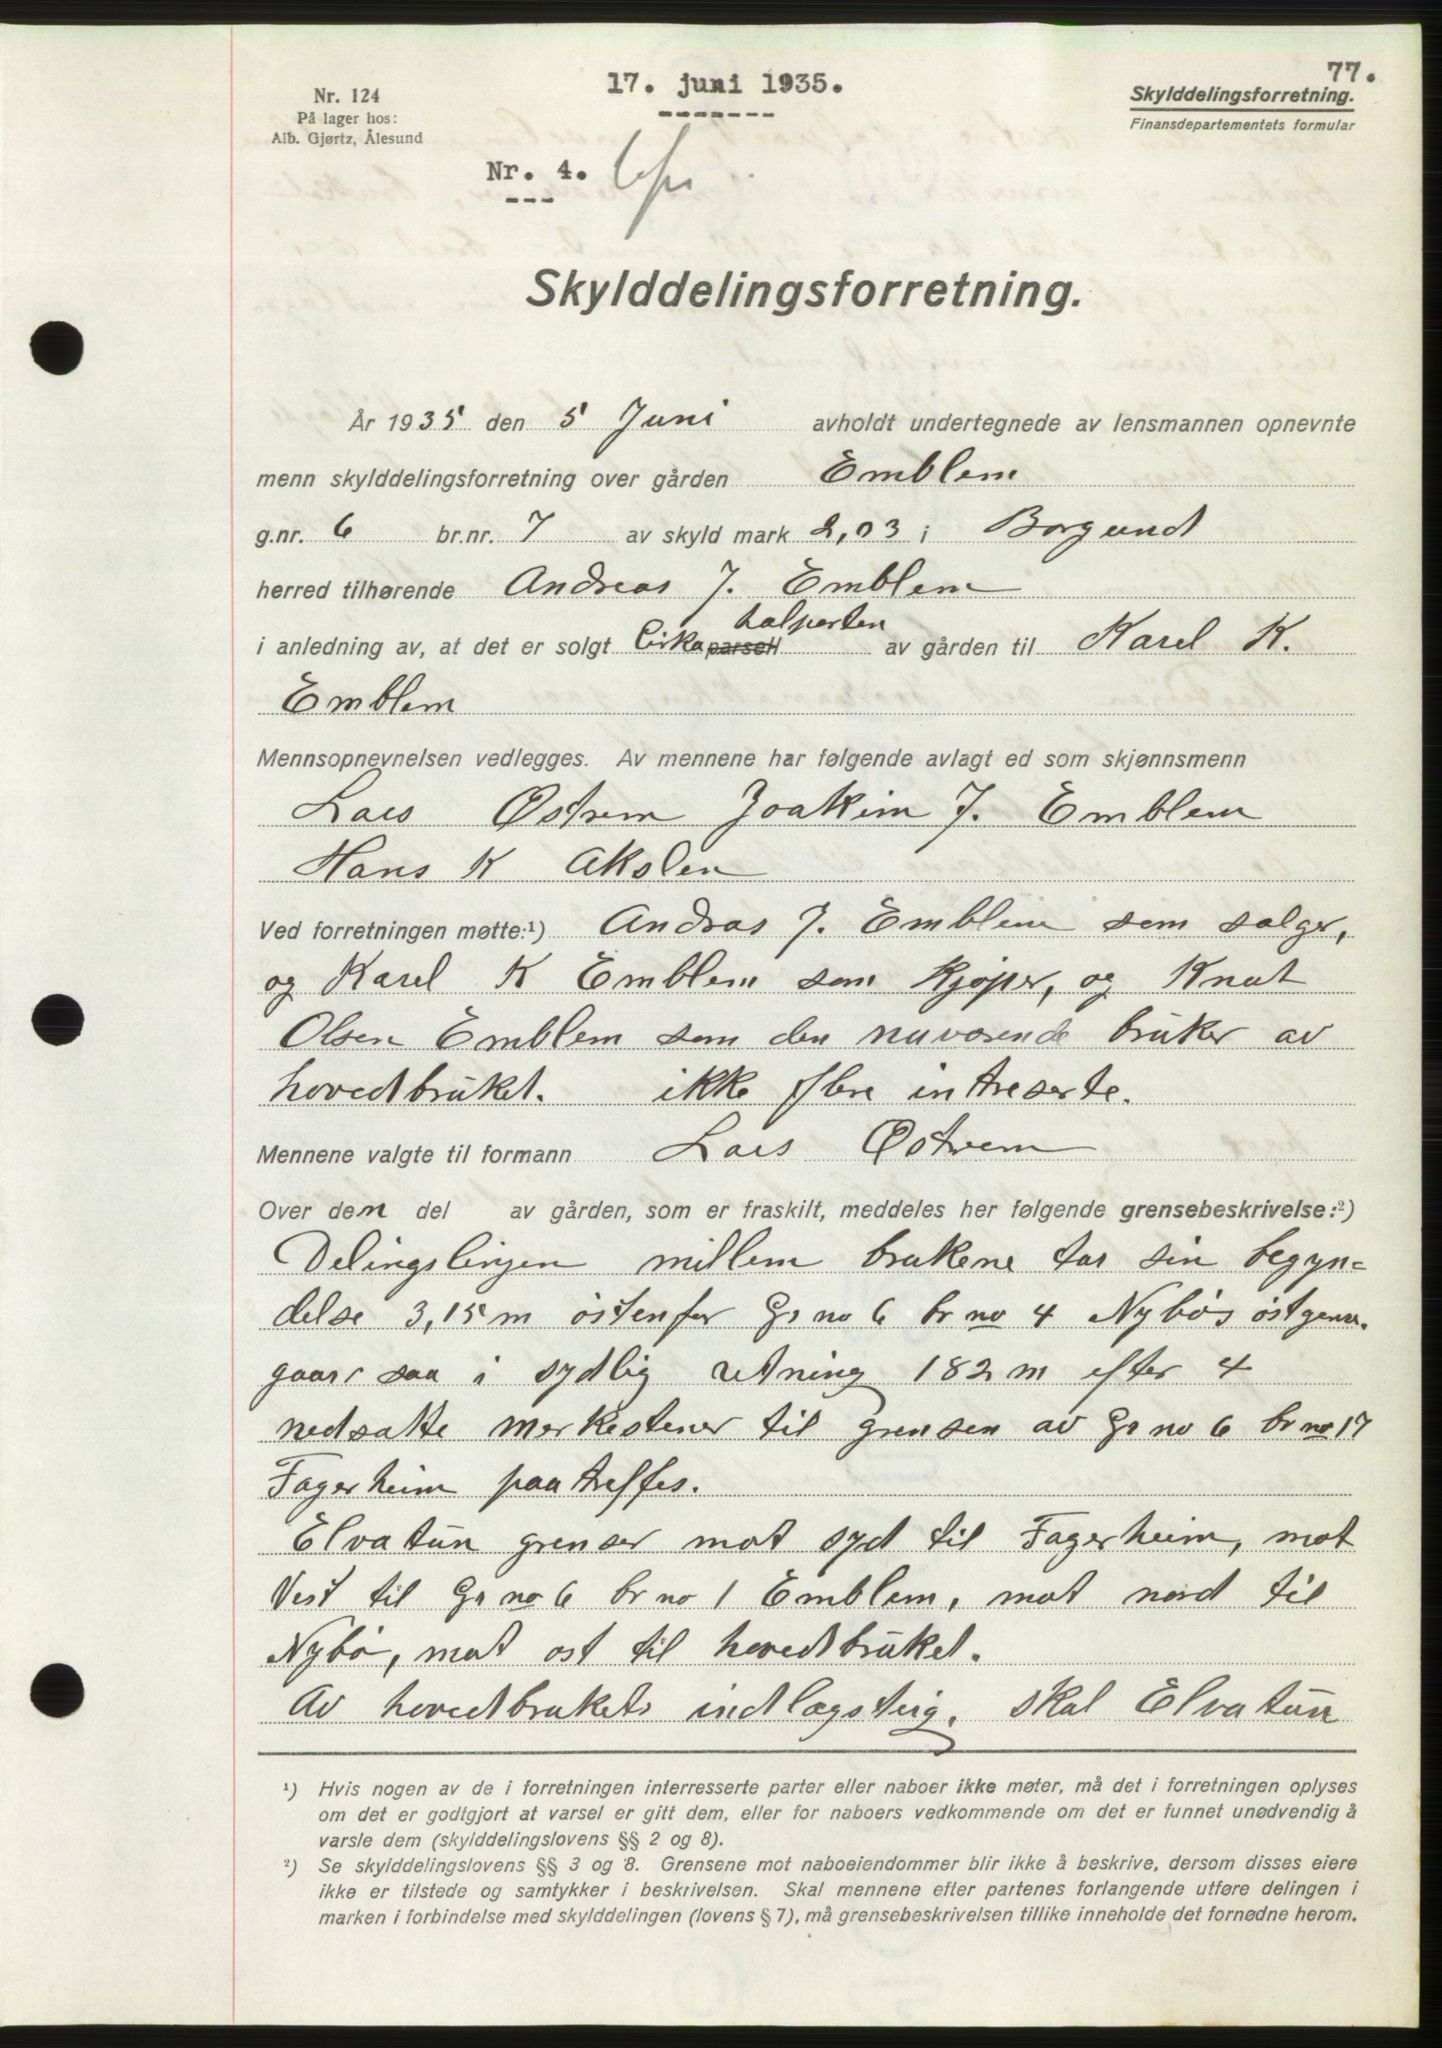 77.
17. juni 1935.
Nr. 124
På lager hos:
Alb. Gjørtz, Ålesund
Skylddelingsforretning.
Finansdepartementets formular
Nr. 4.
Skylddelingsforretning.
År 1935 den 5 Juni avholdt undertegnede av lensmannen opnevnte
menn skylddelingsforretning over gården Emblem
g.nr. 6 br.nr. 7 av skyld mark 2,03 i Borgund
herred tilhørende Andreas J. Emblem
halparten
i anledning av, at det er solgt Cirka parsell av gården til Karel K.
Emblem
Mennsopnevnelsen vedlegges. Av mennene har følgende avlagt ed som skjønnsmenn
Lars Østrem Joakim J. Emblem
Hans K Akslen
Ved forretningen møtte:¹) Andras J. Emblem som sælger,
og Karel K Emblem som kjøper, og Knut
Olsen Emblem som den nuværende bruker av
hovedbruket. ikke flere intreserte.
Mennene valgte til formann Lars Østrem
Over den del av gården, som er fraskilt, meddeles her følgende grensebeskrivelse:²)
Delingslinjen millem brukene tar sin begyn=
delse 3,15 m østenfor Gr no 6 br no 4 Nybøs østgense.
gaar saa i sydlig retning 182 m efter 4
nedsatte merkestener til grensen av Gr no 6 br no 17
Fagerheim paatreffes.
Elvatun grenser mot syd til Fagerheim, mot
Vest til Gr no 6 br no 1 Emblem, mot nord til
Nybø, mot øst til hovedbruket.
Av hovedbrukets indlægsteig, skal Elvatun
¹) Hvis nogen av de i forretningen interresserte parter eller naboer ikke møter, må det i forretningen oplyses
om det er godtgjort at varsel er gitt dem, eller for naboers vedkommende om det er funnet unødvendig å
varsle dem (skylddelingslovens §§ 2 og 8).
²) Se skylddelingslovens §§ 3 og 8. Grensene mot naboeiendommer blir ikke å beskrive, dersom disses eiere
ikke er tilstede og samtykker i beskrivelsen. Skal mennene efter partenes forlangende utføre delingen i
marken i forbindelse med skylddelingen (lovens § 7), må grensebeskrivelsen tillike inneholde det fornødne herom.